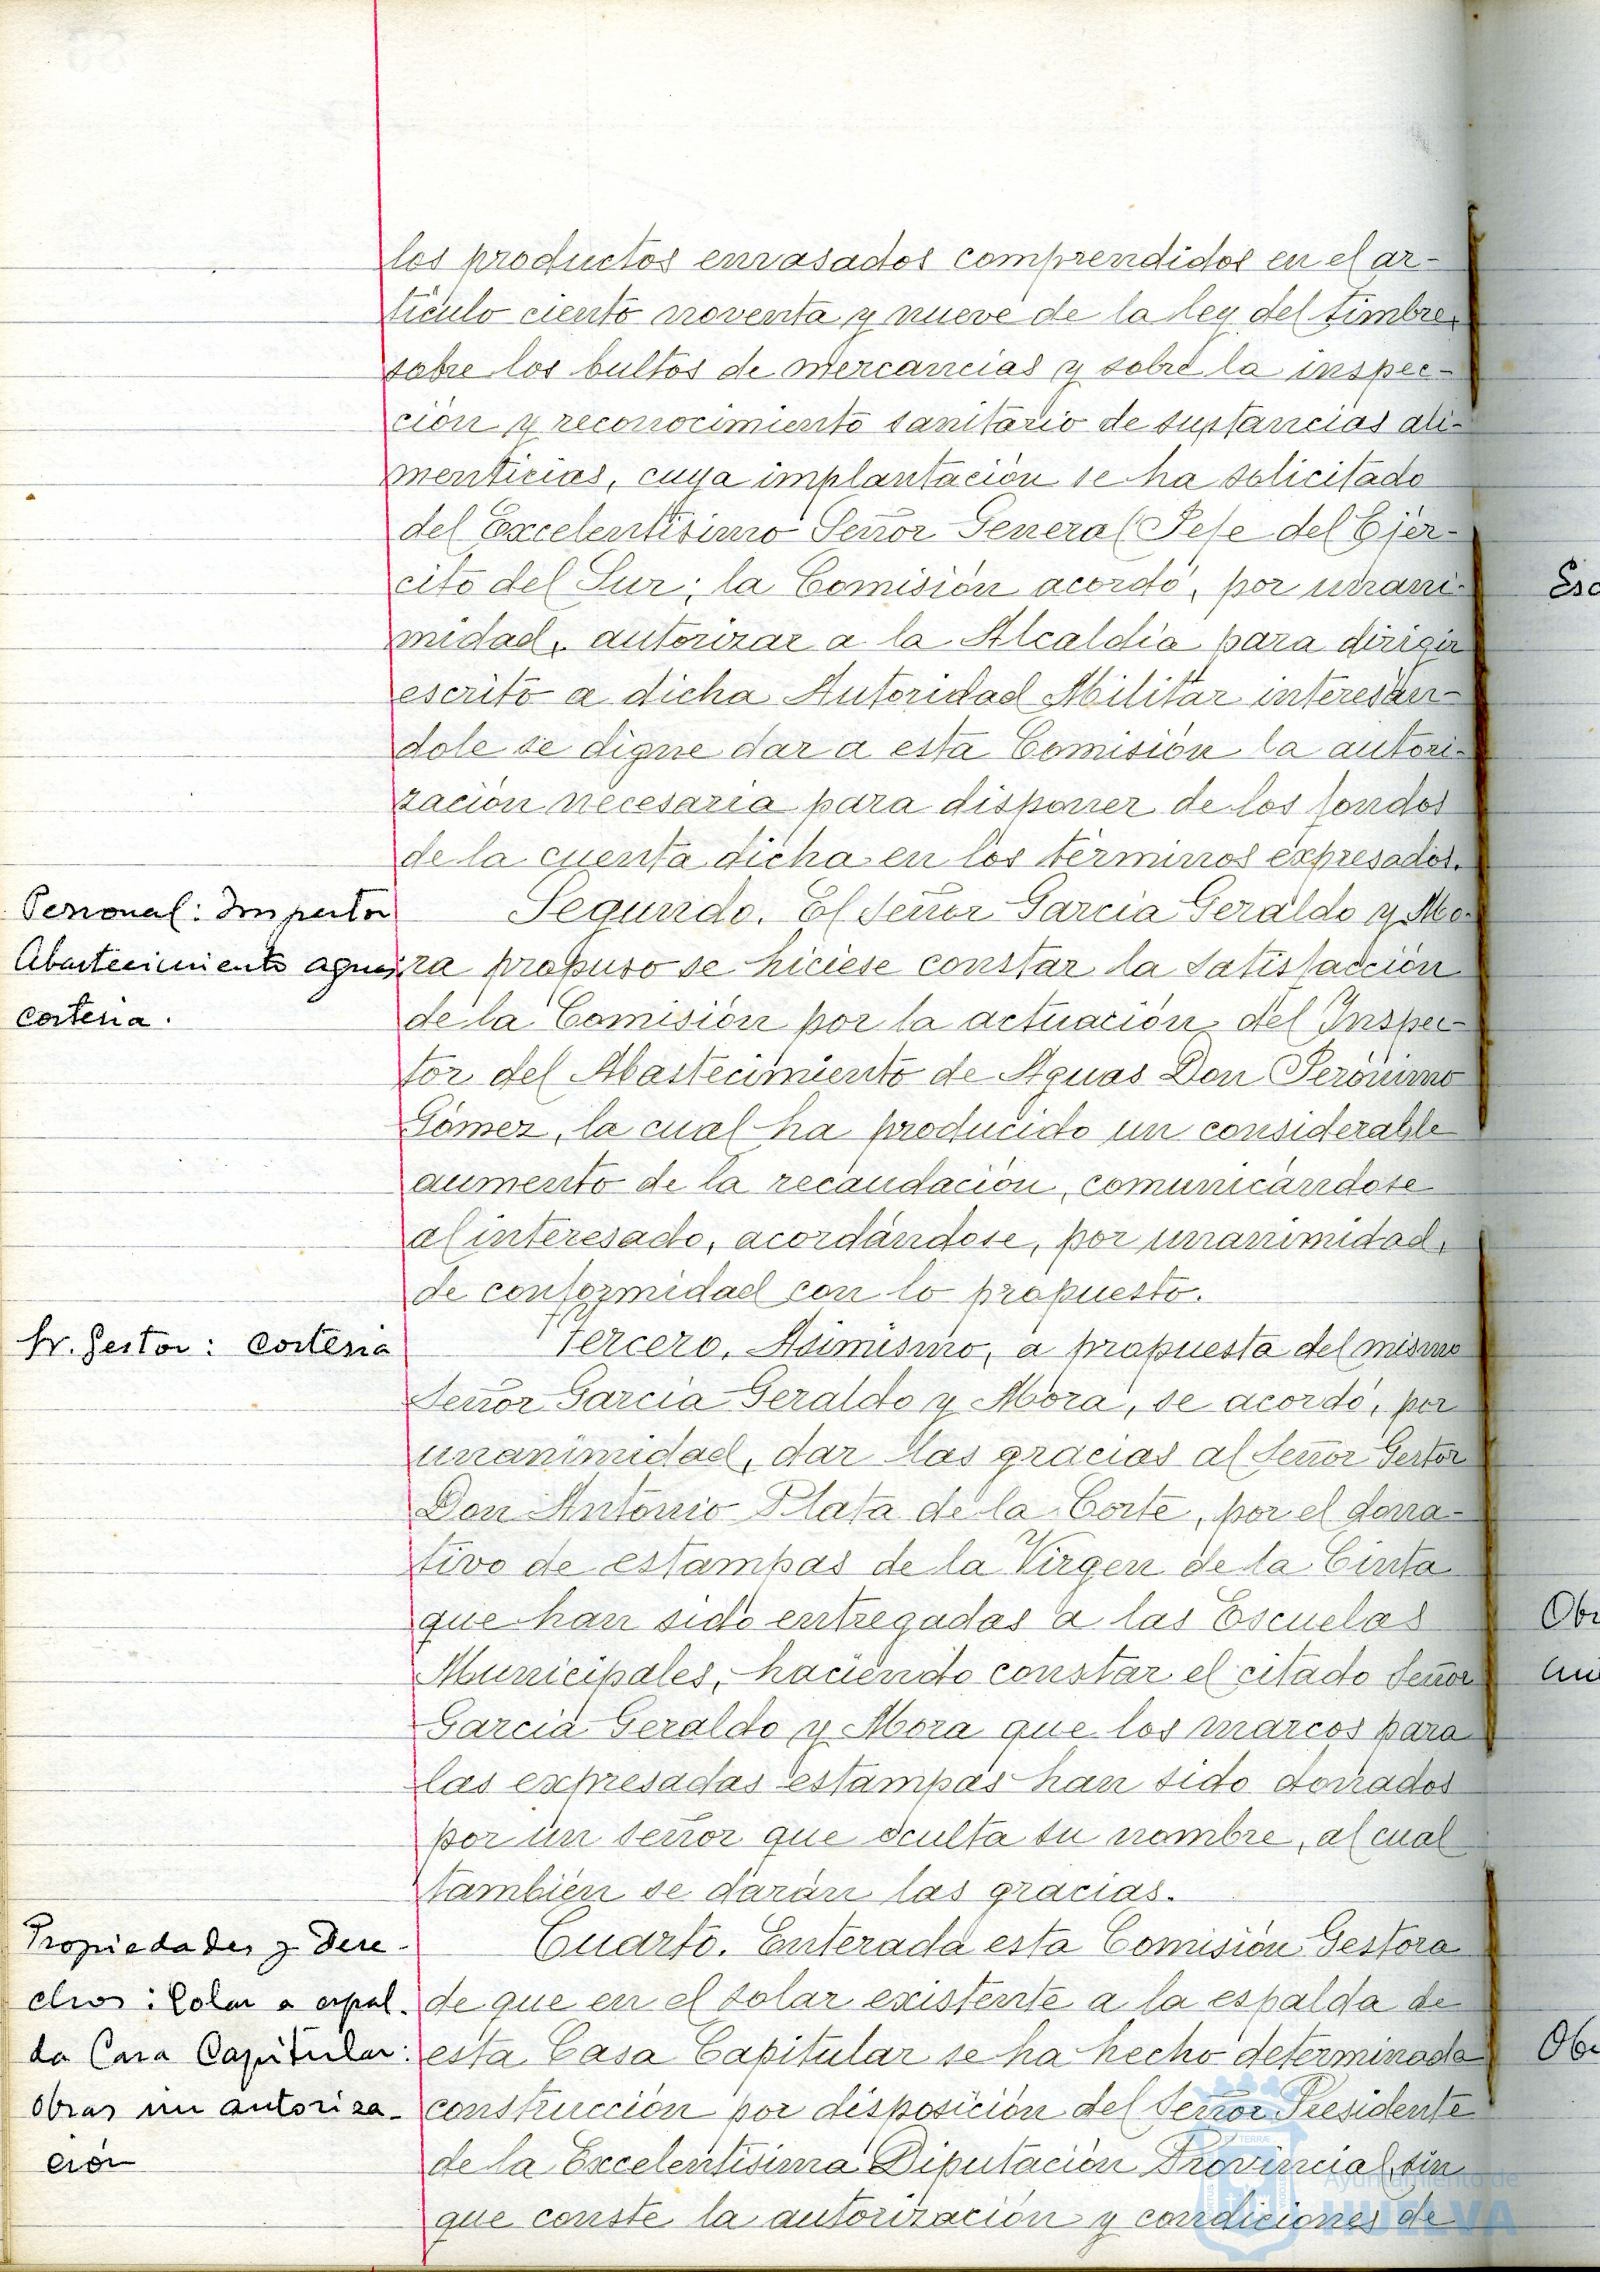 los productos envasados comprendidos en el ar-
tículo ciento noventa y nueve de la ley del timbre,
sobre los bultos de mercancias y sobre la inspec-
ción y reconocimiento sanitario de sustancias ali-
menticias, cuya implantación se ha solicitado
del Excelentísimo Señor General Jefe del Ejér-
cito del Sur; la Comisión acordó, por unani-
midad, autorizar a la Alcaldía para dirigir
escrito a dicha Autoridad Militar interesán-
dole se digne dar a esta Comisión la autori-
zación necesaria para disponer de los fondos
de la cuenta dicha en los términos expresados.
Personal: Inspector
Abastecimiento aguas
cortesia.
Segundo. El Señor García Geraldo y Mo-
ra propuso se hiciese constar la satisfacción
de la Comisión por la actuación del Inspec-
tor del Abastecimiento de Aguas Don Jerónimo
Gómez, la cual ha producido un considerable
aumento de la recaudación, comunicándose
al interesado, acordándose, por unanimidad,
de conformidad con lo propuesto.
Sr. Gestor: cortesia
Tercero. Asimismo, a propuesta del mismo
Señor García Geraldo y Mora, se acordó, por
unanimidad, dar las gracias al Señor Gestor
Don Antonio Plata de la Corte, por el dona-
tivo de estampas de la Virgen de la Cinta
que han sido entregadas a las Escuelas
Municipales, haciendo constar el citado Señor
García Geraldo y Mora que los marcos para
las expresadas estampas han sido donados
por un señor que oculta su nombre, al cual
también se darán las gracias.
Propiedades y Dere-
chos: Solar a espal-
da Casa Capitular:
obras sin autoriza-
ción
Cuarto. Enterada esta Comisión Gestora
de que en el solar existente a la espalda de
esta Casa Capitular se ha hecho determinada
construcción por disposición del Señor Presidente
de la Excelentísima Diputación Provincial, sin
que conste la autorización y condiciones de
Esc
Obr
Obr
Ayuntamiento de
HUELVA